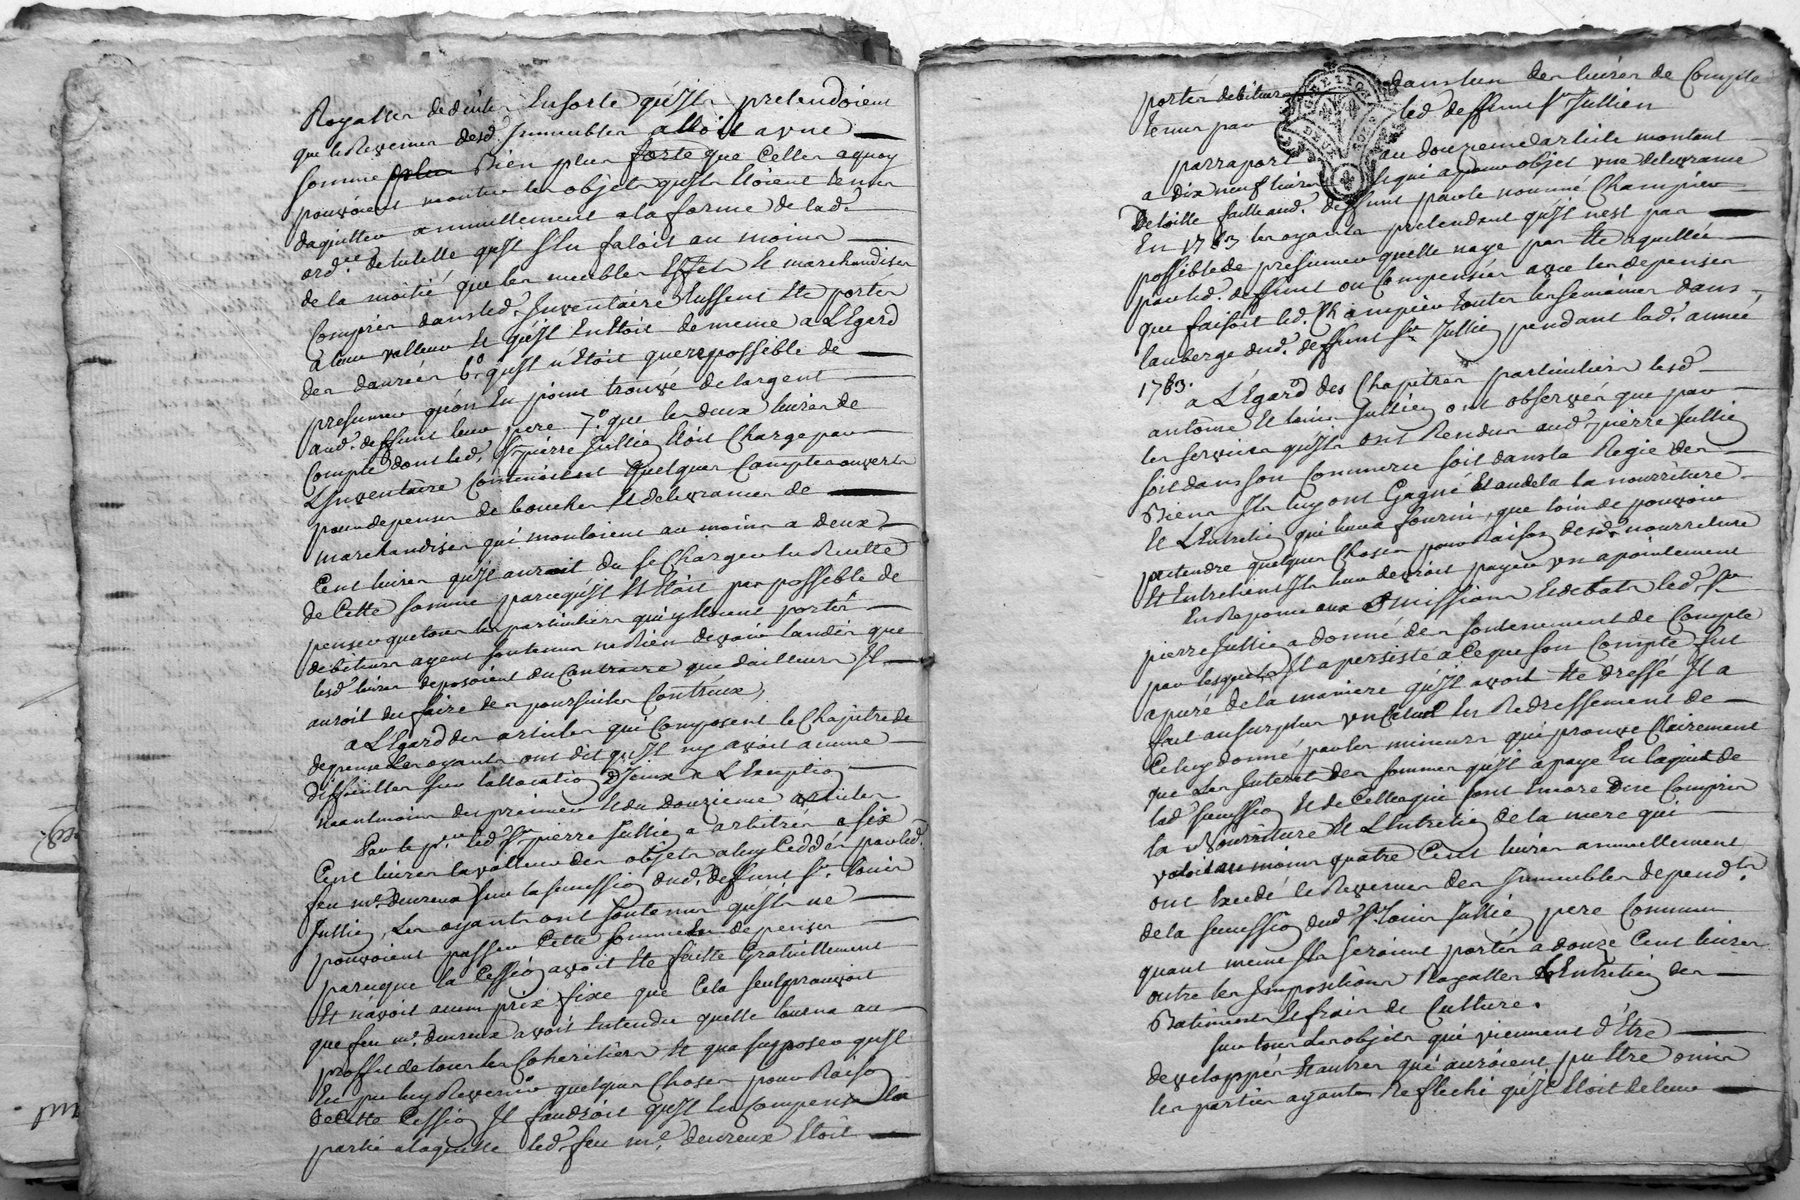 Royalles deduites Ensorte qu'jls pretendoient
que le Revenu desd. Jmmeubles alloit a une
somme plus Bien plus forte que Celles aquoy
pouvoient monter les objets qu'jls Etoient tenus
daquitter annuellement a la forme de lad.
ord.ce de tutelle qu'jl s'En faloit au moins
de la moitié que les meubles Effets Et marchandises
Compris dans led. Jnventaire Eussent Ete portés
a leur valleur Et qu'jl En Etoit de meme a L'Egard
des danrées 6.o qu'jl n'Etoit guere possible de
presumer qu'on En point trouvé de largent
aud. deffunt leur pere 7.o que les deux livres de
Compte dont led. Sr pierre Jullien Etoit Chargé par
L'Jnventaire Contenoient quelques Comptes ouverts
pour depenses de bouches Et delivrances de
marchandises qui montoient au moins a deux
Cent livres qu'jl auroit du se Charger En Recette
de Cette somme parcequ'jl N'Etoit pas possible de
penser que tous les particuliers qui y Etoient portés
debiteurs ayent soutenu ne Rien devoir tandis que
lesd. livres deposoient du Contraire que dailleurs Jl
auroit du faire des poursuites Contr'eux,
a L'Egard des articles qui Composent le Chapitre de
depense Les oyants ont dit qu'jl ny avoit aucune
difficulté sur l'allocation D'Jceux a L'Exception
neantmoins du premier Et du douzieme articles
Par le p.er led. Sr pierre Jullien a arbitré a six
Cent livres la valleur des objets a luy Ceddés par led.
feu m.e devreux sur la succession dud. deffunt Sr. Louis
Jullien, Les oyants ont soutenu qu'jls ne
pouvoient passer Cette somme En depenses
parceque la Cession avoit Ete faitte Gratuittement
Et n'avoit aucun prix fixe que Cela seul prouvoit
que feu m.e devreux avoit Entendu quelle tourna au
proffit de tous les Coheritiers Et qua supposer qu'jl
En put luy Revenir quelques Choses pour Raison
de Cette Cession Jl faudroit qu'jl En Compensa la
partie a laquelle led. feu m.e devreux Etoit
porté debiteur dans lun des livres de Compte
tenus par led. deffunt Sr Jullien
par raport au douzieme article montant
a dix neuf livres Et qui a pour objet une delivrance
de toille faitte aud. deffunt par le nommé Champier
En 1763 les oyants pretendent qu'jl n'est pas
possible de presumer quelle naye pas Ete aquittée
par led. deffunt ou Compensée avec les depenses
que faisoit led. Champier toutes les semaines dans
lauberge dud. deffunt Sr Jullien pendant lad. année
1763.
a L'Egard des Chapitres particuliers lesd.
antoine Et Louis Jullien ont observés que par
les services qu'jls ont Rendus aud. pierre Jullien
soit dans son Commerce soit dans la Regie des
Biens Jls luy ont Gagné Et au dela la nourriture
Et L'Entretien qui leur a fourni, que loin de pouvoir
pretendre quelques Choses pour Raison desd. nourriture
Et Entretiens Jls leur devroit payer un apointement
En Reponse aux omissions Et debats led. Sr
pierre Jullien a donné des soutenement de Compte
par lesquels Jl a persisté a Ce que son Compte fut
apuré de la maniere qu'jl avoit Ete dressé Jl a
fait au surplus un Calcul En Redressement de
Celuy donné par les mineurs qui prouve Clairement
que Les Jnterets des sommes qu'jl a payé En laquit de
lad. succession Et de Celles qui sont Encore Dues Compris
la Nourriture Et L'Entretien de la mere qui
valoit au moins quatre Cent livres annuellement
ont Excedé le Revenu des Jmmeubles depend.ts
de la succession dud. Sr. Louis Jullien pere Commun
quant meme Jls seroient portés a douze Cent livres
outre les Jmpositions Royalles L'Entretien des
Batiments Et frais de Culture.
sur tous Les objets qui viennent d'Etre
developpés Et autres qui auroient pu Etre omis
les parties ayants Reflechi qu'jl Etoit de leur